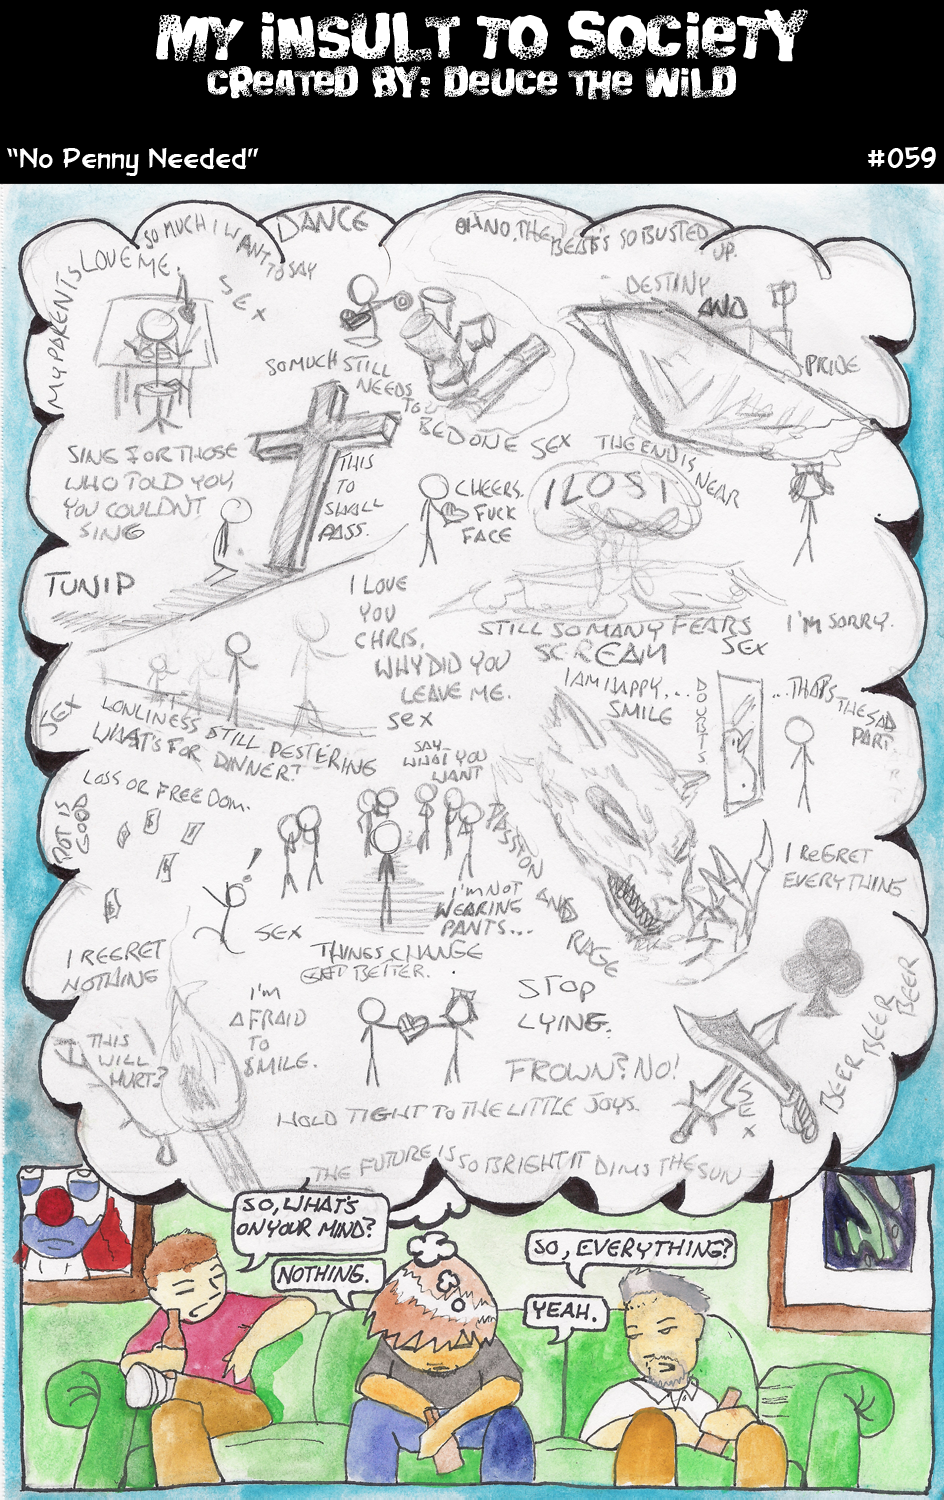 MY INSULT TO SOCIETY
CREATED BY: DEUCE THE WILD
“No Penny Needed”
#059
MY PARENTS LOVE ME.
SO MUCH I WANT TO SAY
SEX
DANCE
OH NO, THE BEAT'S SO BUSTED UP.
DESTINY
AND
PRIDE
SO MUCH STILL
NEEDS
TO
BE DONE
SEX
THE END IS
NEAR
SING FOR THOSE
WHO TOLD YOU,
YOU COULDN'T
SING
THIS
TO
SHALL
PASS.
CHEERS.
FUCK
FACE
I LOST
TUNIP
I LOVE
YOU
CHRIS,
WHY DID YOU
LEAVE ME.
SEX
STILL SO MANY FEARS
SCREAM
SEX
I'M SORRY.
I AM HAPPY...
SMILE
DOUBTS
...THAT'S
THE SAD
PART.
SEX
LONLINESS STILL PESTERING
WHAT'S FOR DINNER?
SAY
WHAT YOU
WANT
LOSS OR FREEDOM.
POT IS
GOOD
!
SEX
PASSION
AND
RAGE
I'M NOT
WEARING
PANTS...
THINGS CHANGE
GET BETTER.
I REGRET
EVERYTHING
I REGRET
NOTHING
I'M
AFRAID
TO
SMILE.
STOP
LYING.
THIS
WILL
HURT?
FROWN? NO!
SEX
BEER BEER BEER
HOLD TIGHT TO THE LITTLE JOYS.
THE FUTURE IS SO BRIGHT IT DIMS THE SUN
SO, WHAT'S
ON YOUR MIND?
NOTHING.
SO, EVERYTHING?
YEAH.